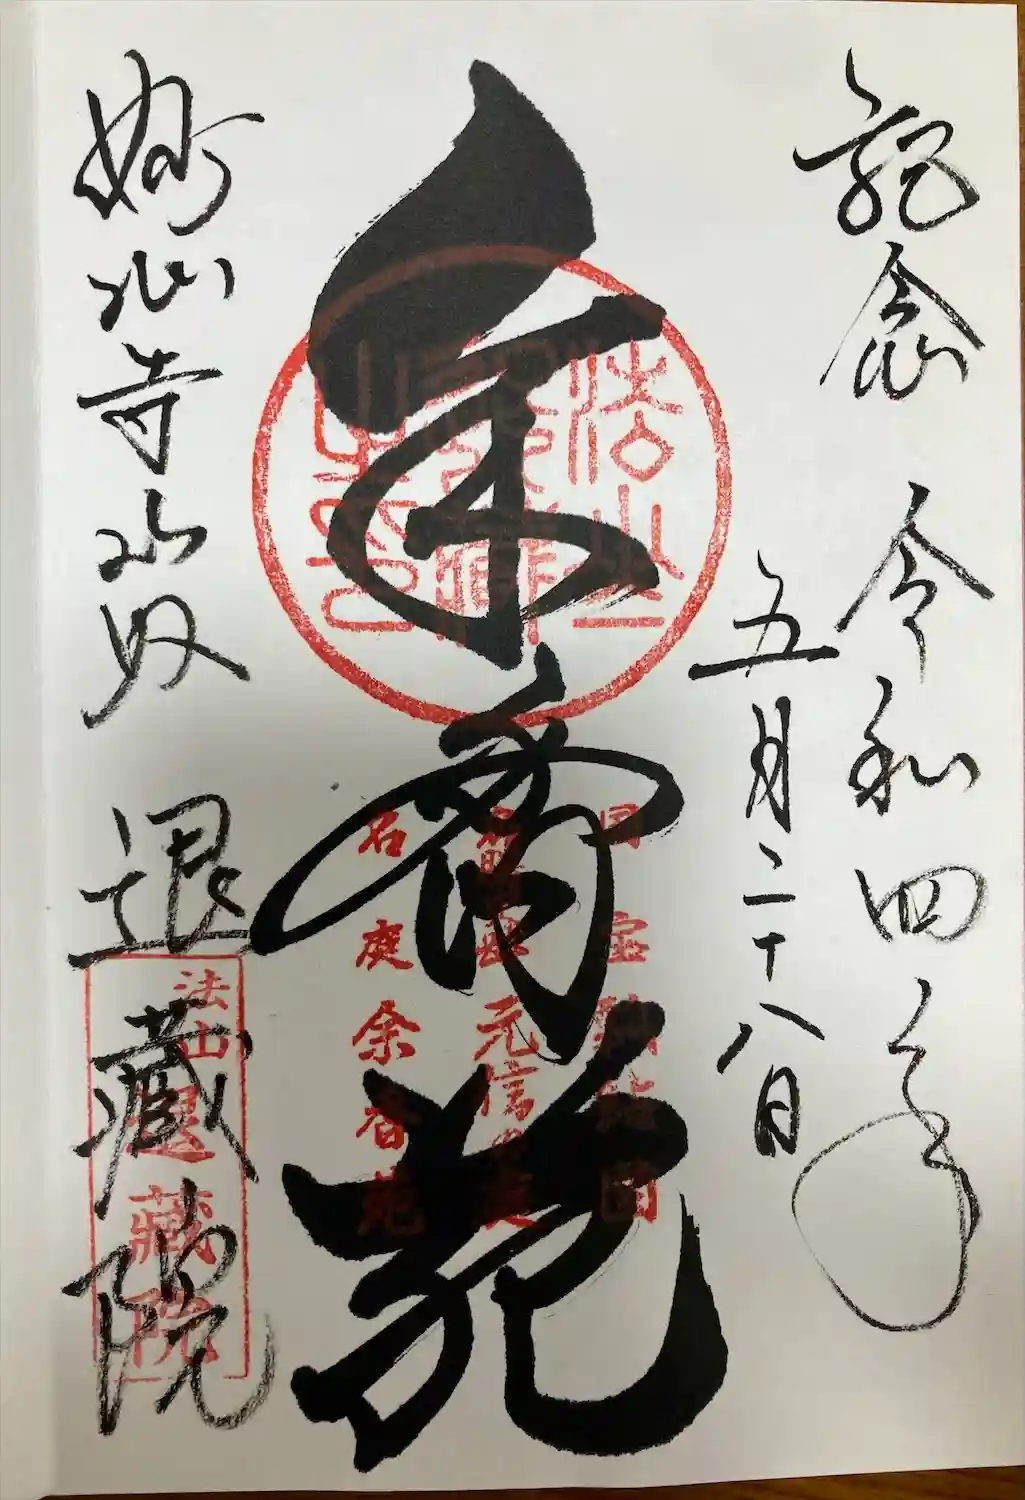 記念 令和四年
五月二十八日
余香苑
国宝瓢鮎図
元信の庭
名庭 余香苑
妙心寺山内 退蔵院
法山
退藏院